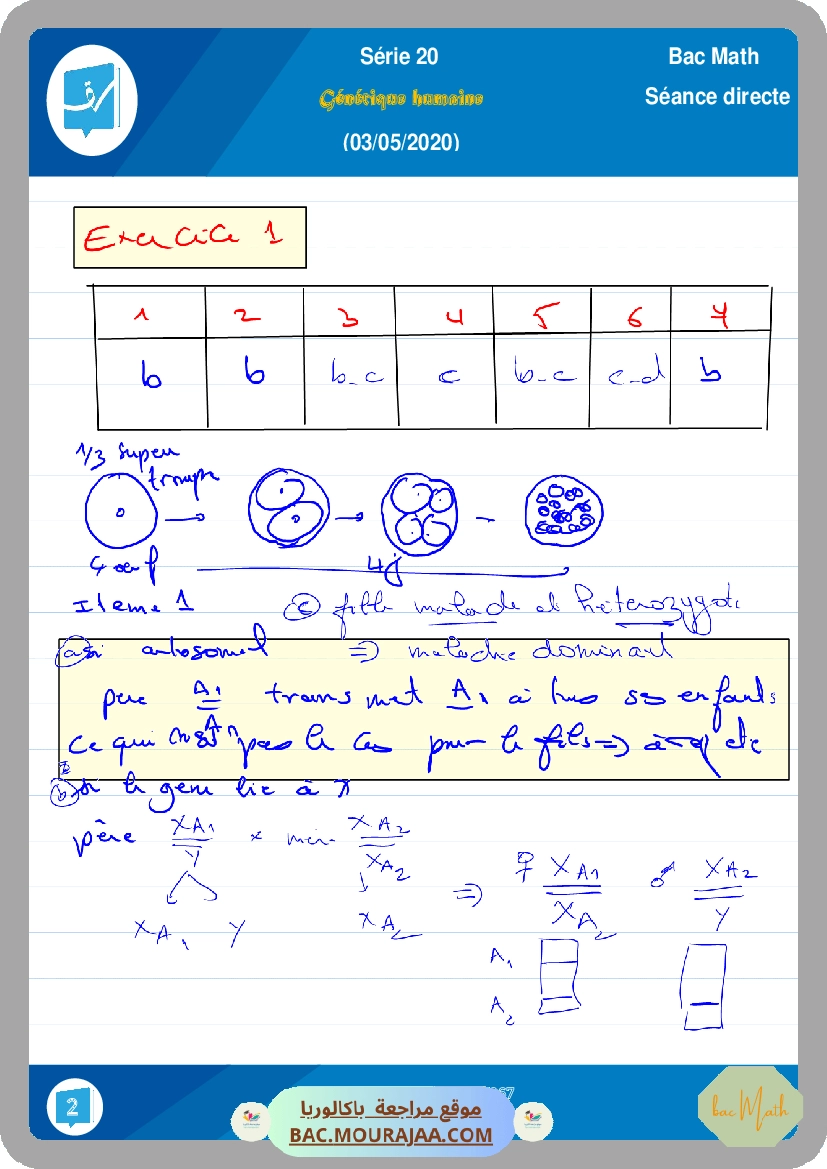 Série 20
Bac Math
Génétique humaine
Séance directe
(03/05/2020)
Exercice 1
1 2 3 4 5 6 7
b b b-c c b-c c-d b
1/3 super
trompe
4j
Item 1 (c) fille malade et hétérozygote
(a) si autosomal => maladie dominant
père A1 transmet A1 à tous ses enfants
ce qui n'est pas le cas pour le fils =>
(b) si le gène lié à X
père XA1 × mère XA2
Y XA2
=> ♀ XA1 ♂ XA2
XA2 Y
XA1 Y XA2
A1
A2
2
موقع مراجعة باكالوريا
BAC.MOURAJAA.COM
bac Math